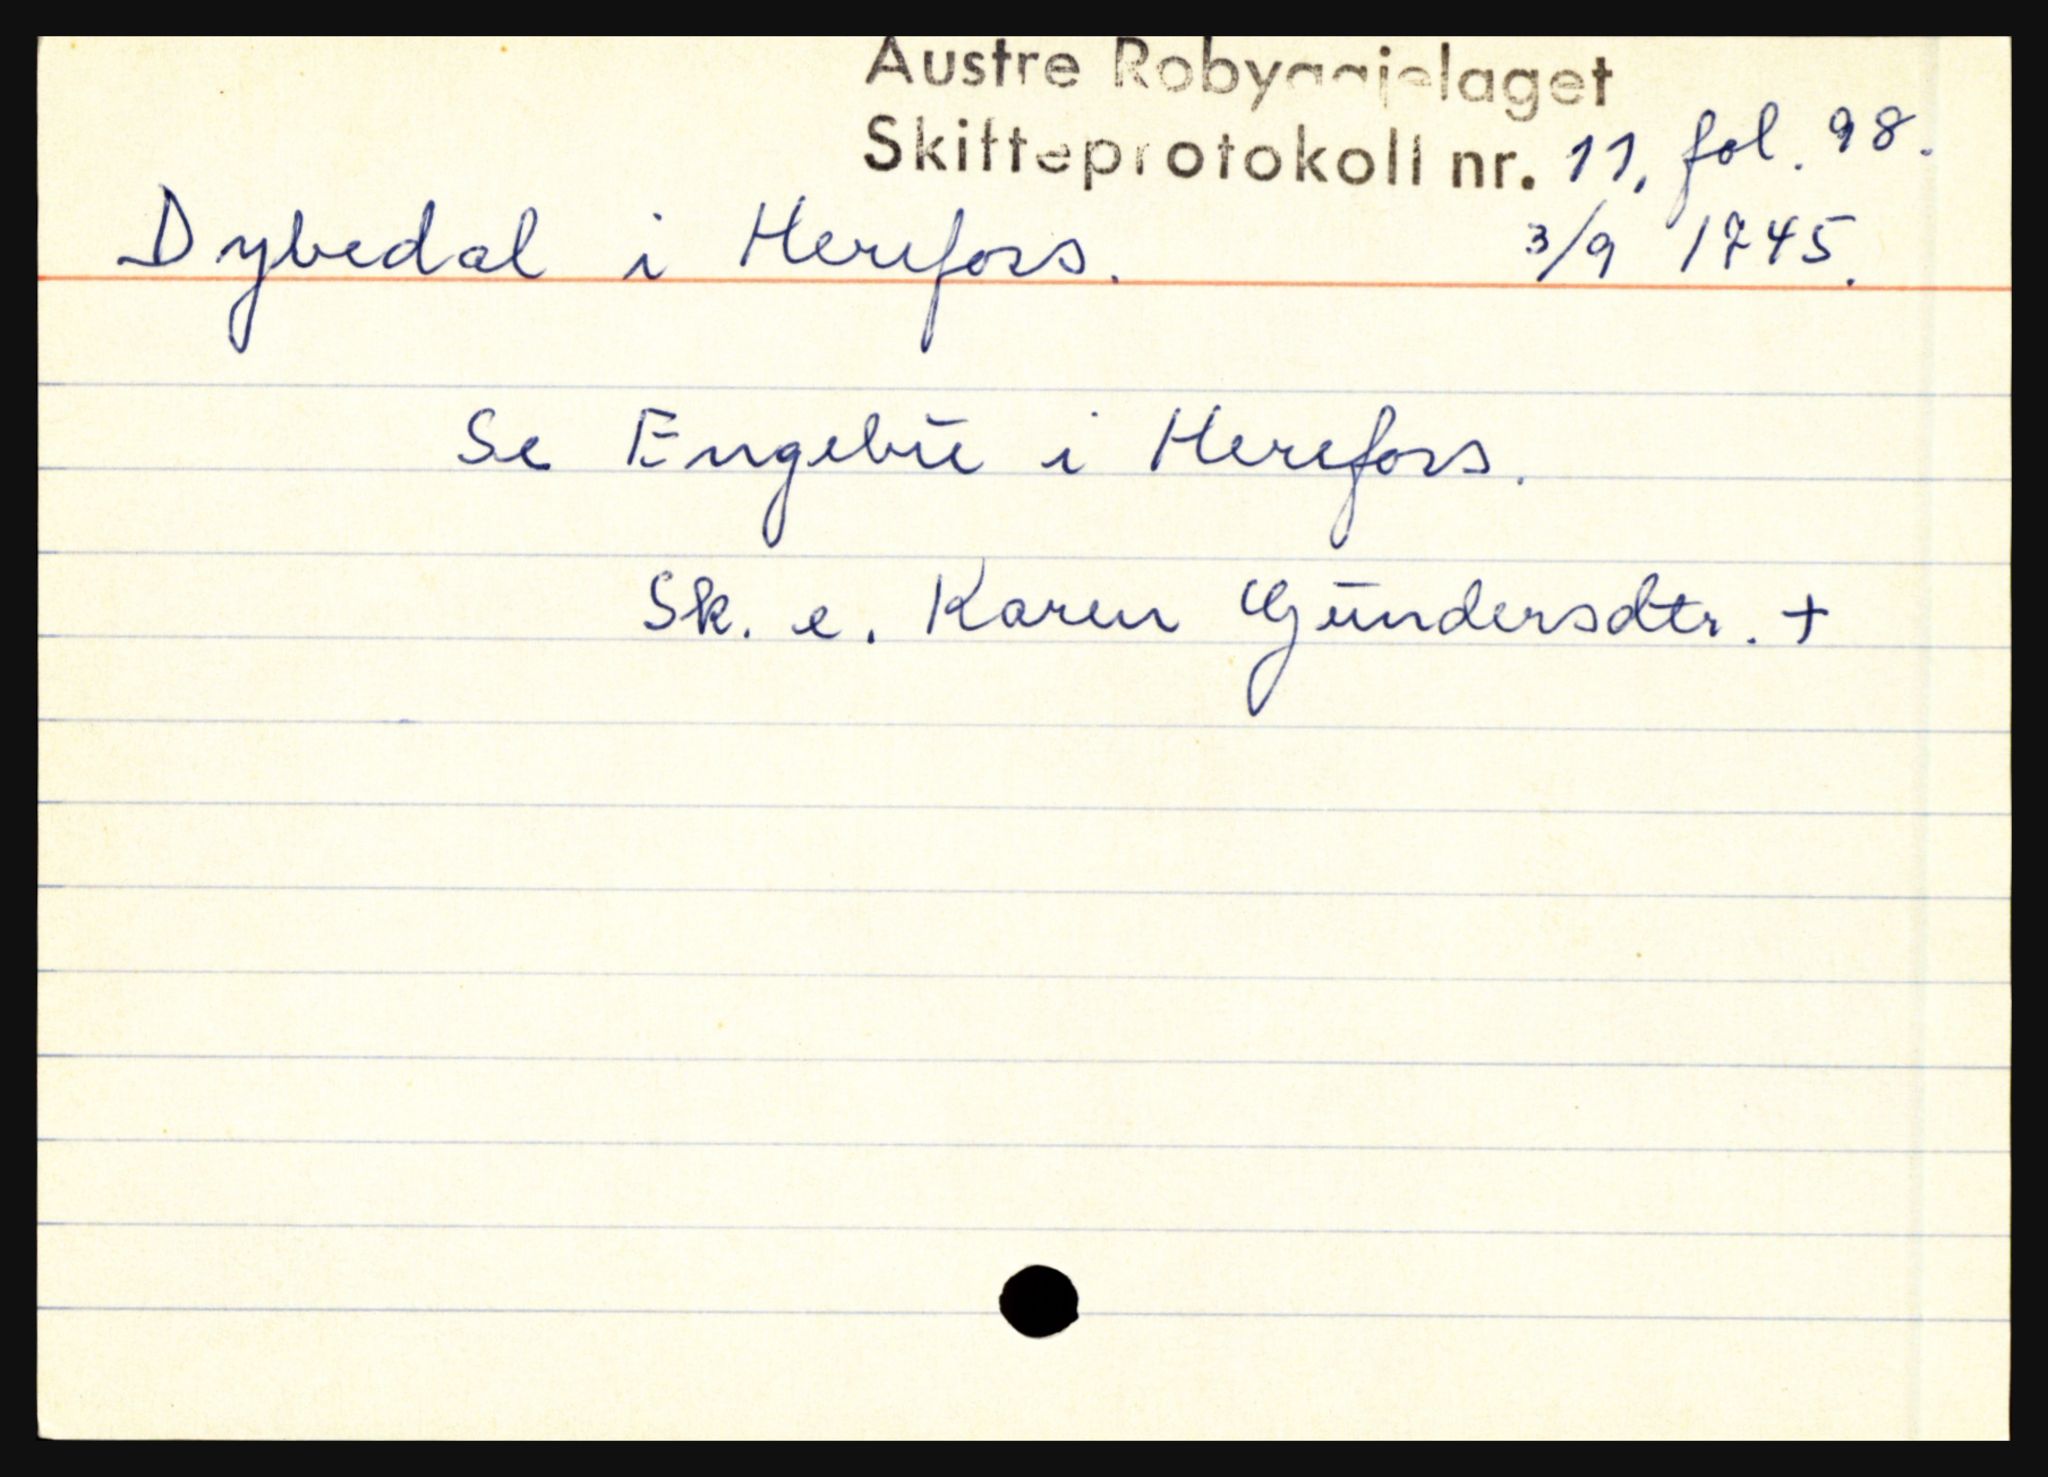 Austre Robyggjelaget
Skifteprotokoll nr. 11, fol. 98.
Dybedal i Herefoss. 3/9 1745.
Se Engebue i Herefoss.
Sk. e. Karen Gundersdtr. +